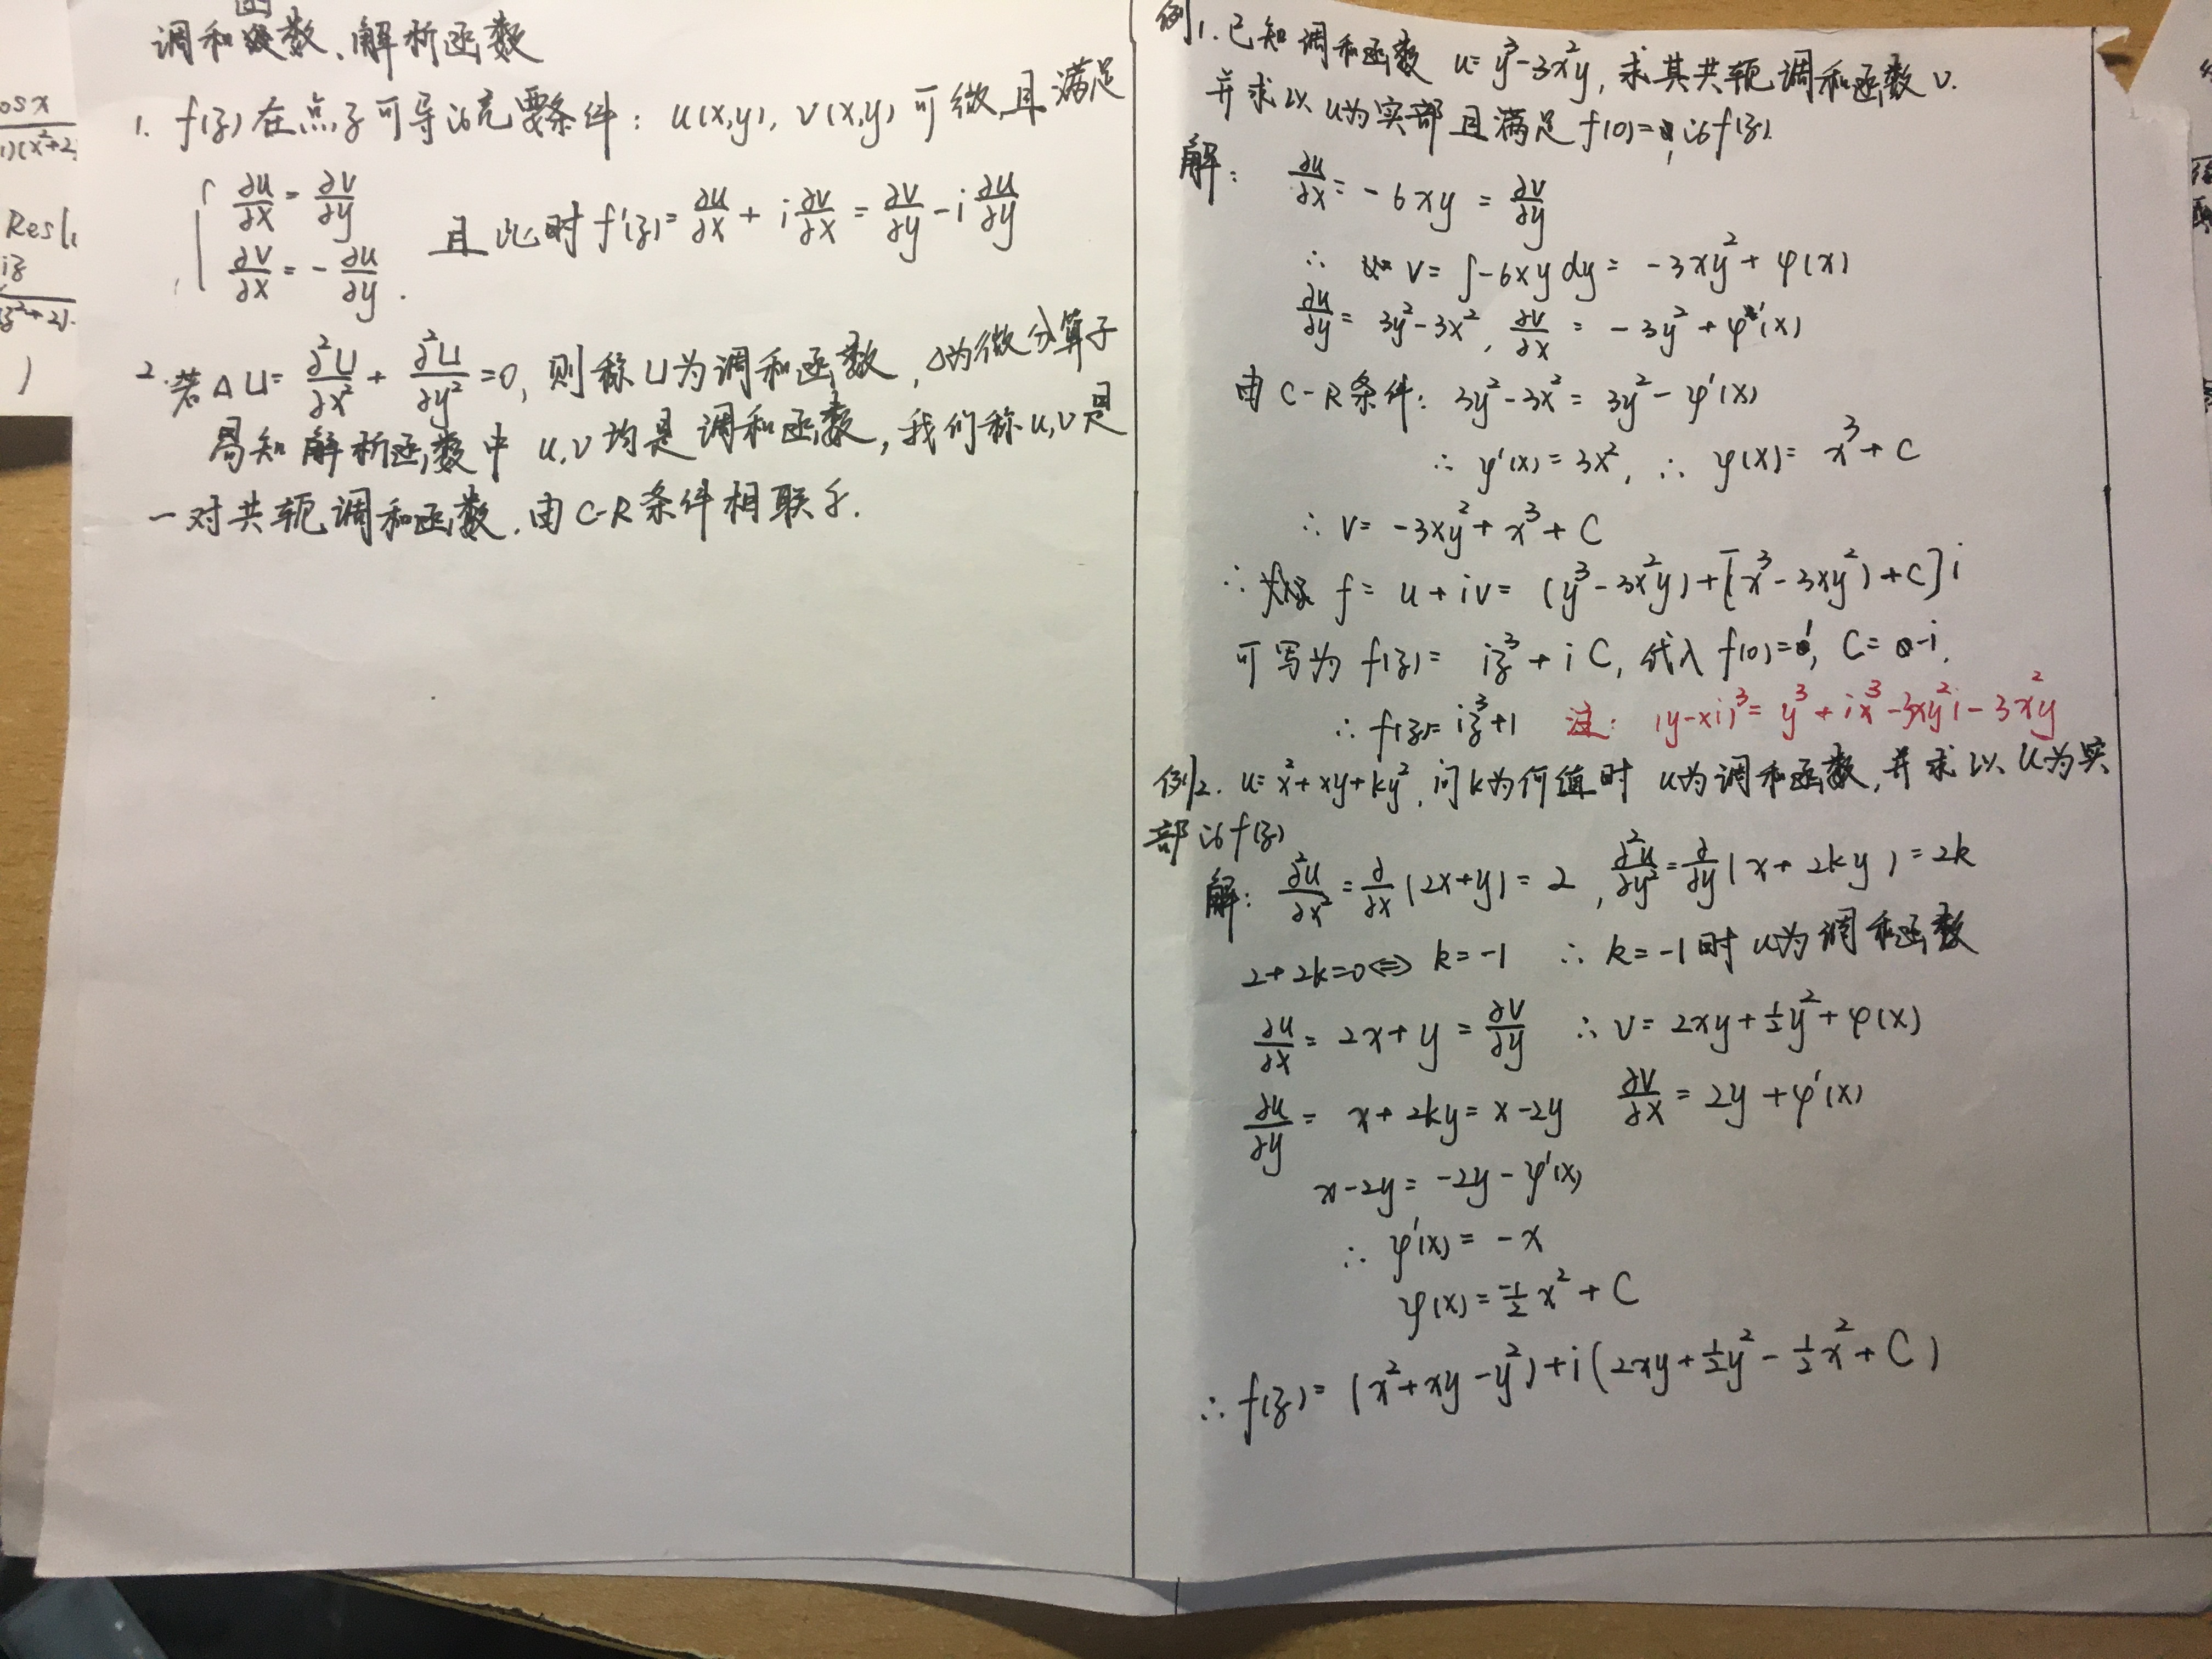 调和函数、解析函数
1. f(z)在点z可导的充要条件: u(x,y), v(x,y) 可微且满足
{ ∂u/∂x = ∂v/∂y
∂v/∂x = -∂u/∂y.
且此时 f'(z) = ∂u/∂x + i ∂v/∂x = ∂v/∂y - i ∂u/∂y
2. 若 ΔU = ∂²U/∂x² + ∂²U/∂y² = 0, 则称U为调和函数, Δ为微分算子
易知解析函数中 u,v均是调和函数, 我们称u,v是
一对共轭调和函数.由C-R条件相联系.
例1.已知调和函数 u=y³-3x²y, 求其共轭调和函数v.
并求以u为实部且满足f(0)=1的f(z)
解: ∂u/∂x = -6xy = ∂v/∂y
∴ v = ∫-6xy dy = -3xy² + φ(x)
∂u/∂y = 3y²-3x², ∂v/∂x = -3y² + φ'(x)
由C-R条件: 3y²-3x² = 3y² - φ'(x)
∴ φ'(x) = 3x², ∴ φ(x) = x³+C
∴ v = -3xy² + x³ + C
∴ f = u+iv = (y³-3x²y)+[x³-3xy²)+C]i
可写为 f(z) = iz³ + iC, 代入f(0)=1, C= -i.
∴ f(z) = iz³+1 注: (y-xi)³ = y³+ix³-3xy²i-3x²y
例2. u=x²+xy+ky², 问k为何值时 u为调和函数,并求以u为实
部的f(z)
解: ∂²u/∂x² = ∂/∂x(2x+y) = 2, ∂²u/∂y² = ∂/∂y(x+2ky) = 2k
2+2k=0 ⇔ k=-1 ∴ k=-1时u为调和函数
∂u/∂x = 2x+y = ∂v/∂y ∴ v = 2xy+½y²+φ(x)
∂u/∂y = x+2ky = x-2y ∂v/∂x = 2y+φ'(x)
x-2y = -2y-φ'(x)
∴ φ'(x) = -x
φ(x) = -½x²+C
∴ f(z) = (x²+xy-y²)+i(2xy+½y²-½x²+C)